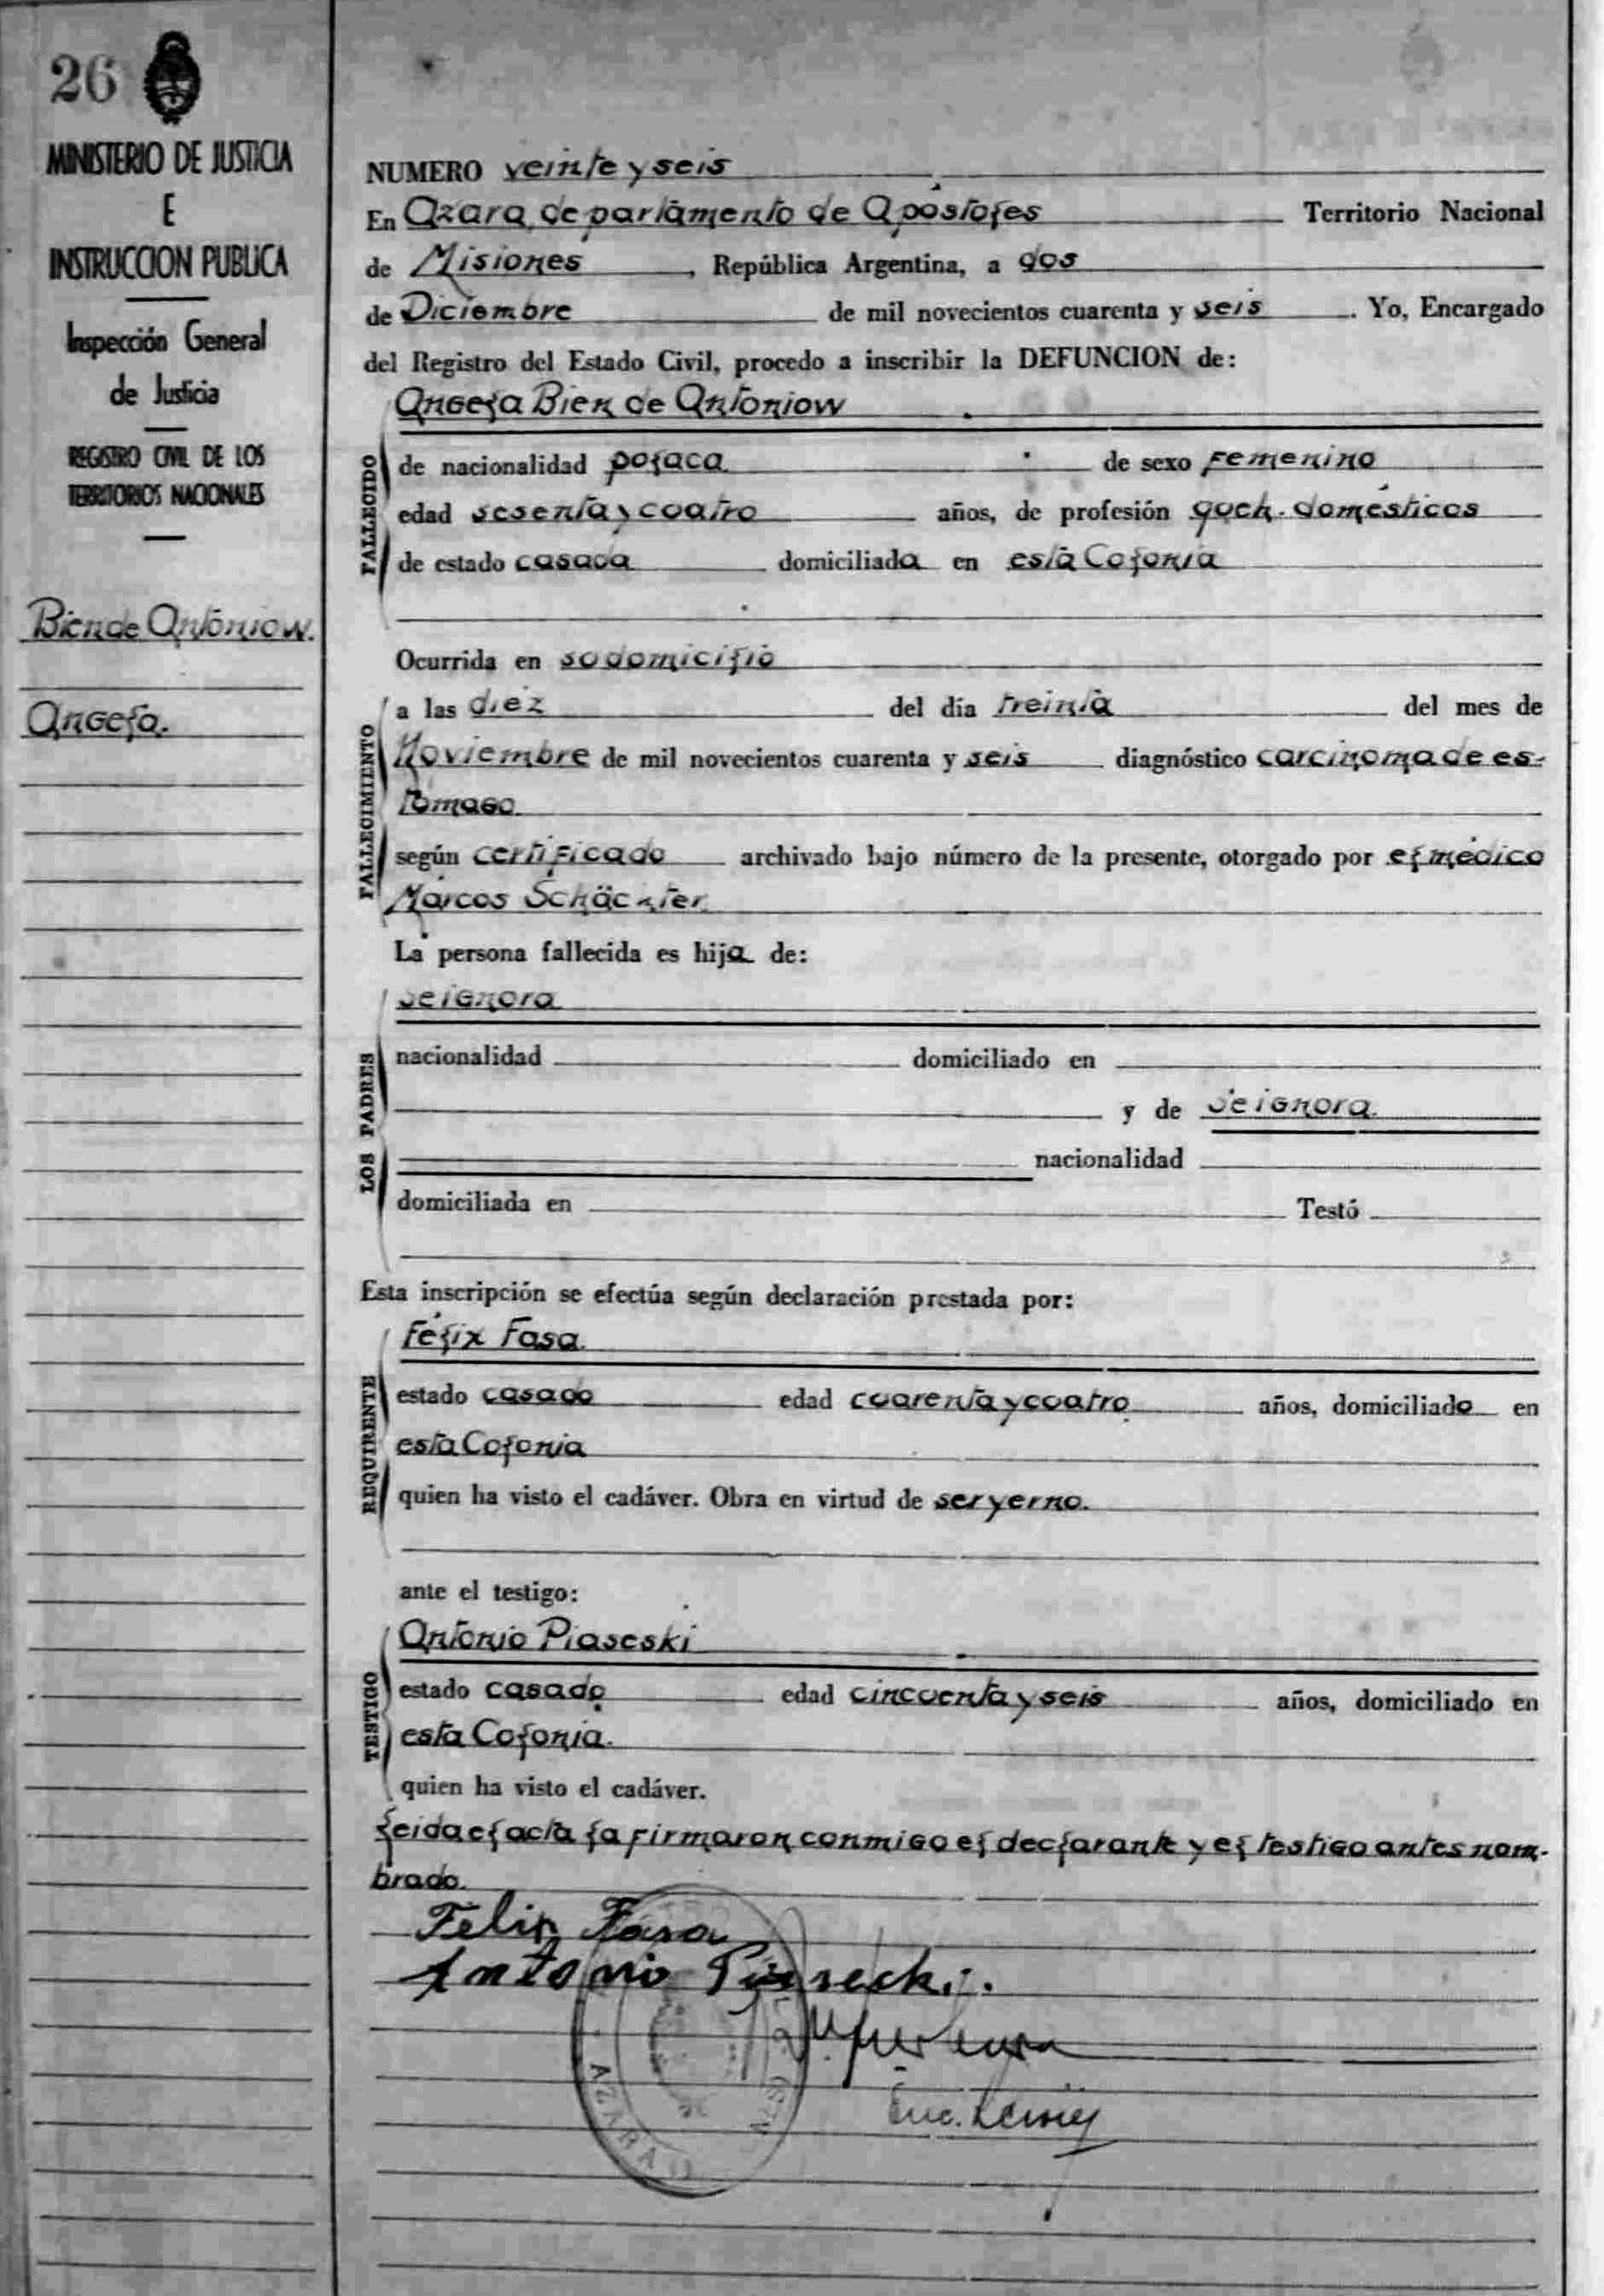 26
MINISTERIO DE JUSTICIA
E
INSTRUCCION PUBLICA
Inspección General
de Justicia
REGISTRO CIVIL DE LOS
TERRITORIOS NACIONALES
Bien de Antoniow.
Angela.
NUMERO veinte y seis
En Azara, departamento de Apóstoles Territorio Nacional
de Misiones, República Argentina, a dos
de Diciembre de mil novecientos cuarenta y seis. Yo, Encargado
del Registro del Estado Civil, procedo a inscribir la DEFUNCION de:
Angela Bien de Antoniow
FALLECIDO
de nacionalidad polaca de sexo Femenino
edad sesenta y cuatro años, de profesión queh. domésticos
de estado casada domiciliada en esta Colonia
Ocurrida en su domicilio
FALLECIMIENTO
a las diez del día treinta del mes de
Noviembre de mil novecientos cuarenta y seis diagnóstico carcinoma de es-
tomago
según certificado archivado bajo número de la presente, otorgado por el médico
Marcos
La persona fallecida es hija de:
LOS PADRES
se ignora
nacionalidad domiciliado en
y de Se ignora.
nacionalidad
domiciliada en Testó
Esta inscripción se efectúa según declaración prestada por:
REQUIRENTE
Félix Fasa
estado casado edad cuarenta y cuatro años, domiciliado en
esta Colonia
quien ha visto el cadáver. Obra en virtud de ser yerno.
ante el testigo:
TESTIGO
Antonio Piaseski
estado casado edad cincuenta y seis años, domiciliado en
esta Colonia.
quien ha visto el cadáver.
Leida el acta la firmaron conmigo el declarante y el testigo antes nom-
brado.
Felix Fasa
Antonio Piasecki.
Enc.
AZARA